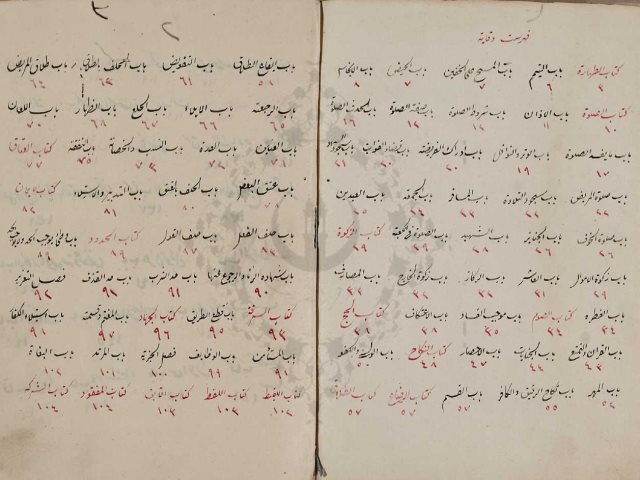 فهرست وقاية
كتاب الطهارة باب التيمم باب المسح على الخفين باب الحيض باب الانجاس
٣ ٦ ٧ ٧ ٨
كتاب الصلوة باب الاذان باب شروط الصلوة باب صفة الصلوة باب الحدث في الصلوة
١٠ ١١ ١٢ ١٢ ١٦
باب ما يفسد الصلوة باب الوتر والنوافل باب ادراك الفريضة باب قضاء الفوائت باب سجود السهو
١٧ ١٩ ٢٠ ٢١
باب صلوة المريض باب سجود التلاوة باب المسافر باب الجمعة باب العيدين
٢٢ ٢٢ ٢٣ ٢٥
باب صلوة الخوف باب الجنائز باب الشهيد باب الصلوة في الكعبة كتاب الزكوة
٢٦ ٢٦ ٢٨ ٢٩ ٢٩
باب زكوة الاموال باب العاشر باب الركاز باب زكوة الخارج باب المصارف
٣١ ٣٢ ٣٣
باب الفطرة كتاب الصوم باب موجب الافساد باب الاعتكاف كتاب الحج
٣٤ ٣٤ ٣٥ ٣٨
باب القران والتمتع باب الجنايات باب الاحصار كتاب النكاح باب الولي والكفو
٤٣ ٤٤ ٤٧ ٤٨
باب المهر باب نكاح الرقيق والكافر باب القسم كتاب الرضاع كتاب الطلاق
٥٥ ٥٧ ٥٧ ٥٧
باب ايقاع الطلاق باب التفويض باب طلاق المريض
٥٨ ٦١ ٦٣ ٦٤
باب الرجعة باب الايلاء باب الخلع باب الظهار باب اللعان
٦٥ ٦٦ ٦٧ ٦٨ ٧٠
باب العنين باب العدة باب النسب والحضانة باب النفقة كتاب العتاق
٧١ ٧٢ ٧٣ ٧٥ ٧٧
باب عتق البعض باب الحلف بالعتق باب التدبير والاستيلاد كتاب الايمان
٨١ ٨٢
باب حلف الفعل باب حلف القول كتاب الحدود باب الوطئ يوجب الحد او لا يوجبه
٨٦ ٨٩
باب شهادة الزنا والرجوع عنها باب حد الشرب باب حد القذف فصل التعزير
٩٠ ٩١ ٩١ ٩٢
كتاب السرقة باب قطع الطريق كتاب الجهاد باب المغنم وقسمته باب استيلاء الكفار
٩٣ ٩٥ ٩٦ ٩٧ ٩٨
باب المستأمن باب الوظايف فصل الجزية باب المرتد باب البغاة
٩٩ ١٠٠ ١٠١ ١٠٢
كتاب اللقيط كتاب اللقطة كتاب الآبق كتاب المفقود كتاب الشركة
١٠٢ ١٠٣ ١٠٣ ١٠٤ ١٠٤